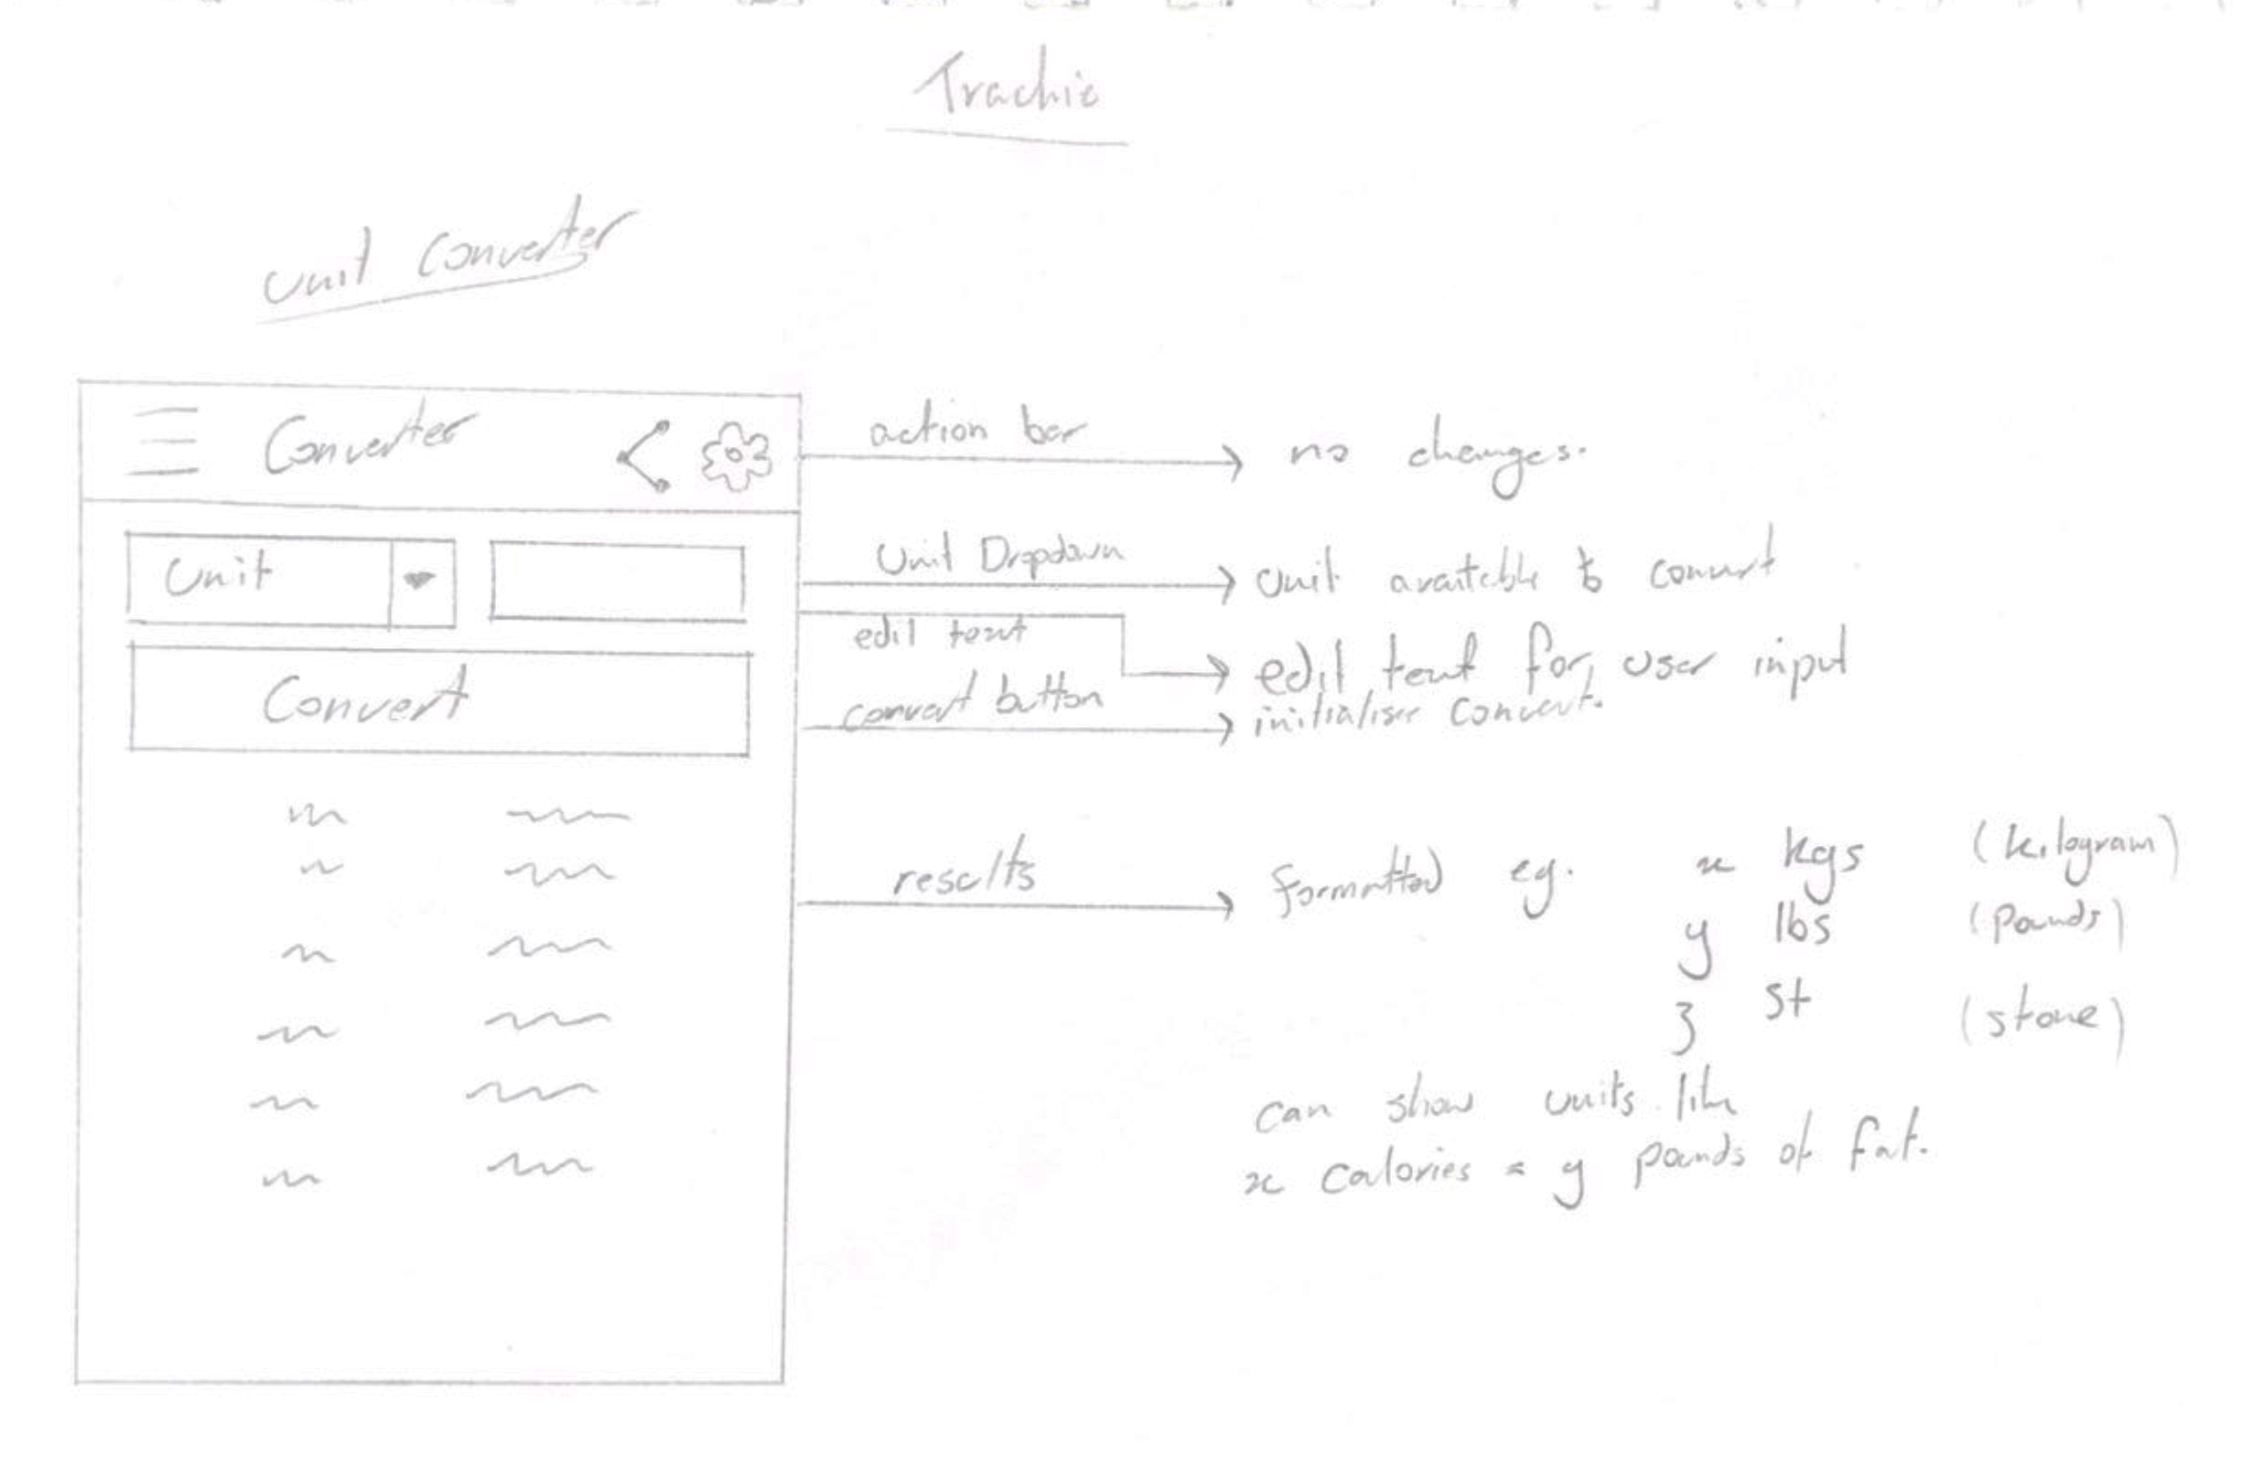 Trachie
Unit Converter
Converter
action bar
no changes.
Unit
Unit Dropdown
Unit available to convert
edit text
edit text for user input
Convert
convert button
initialiser convert.
results
formatted eg. x kgs (kilogram)
y lbs (pounds)
z st (stone)
can show units like
x calories = y pounds of fat.